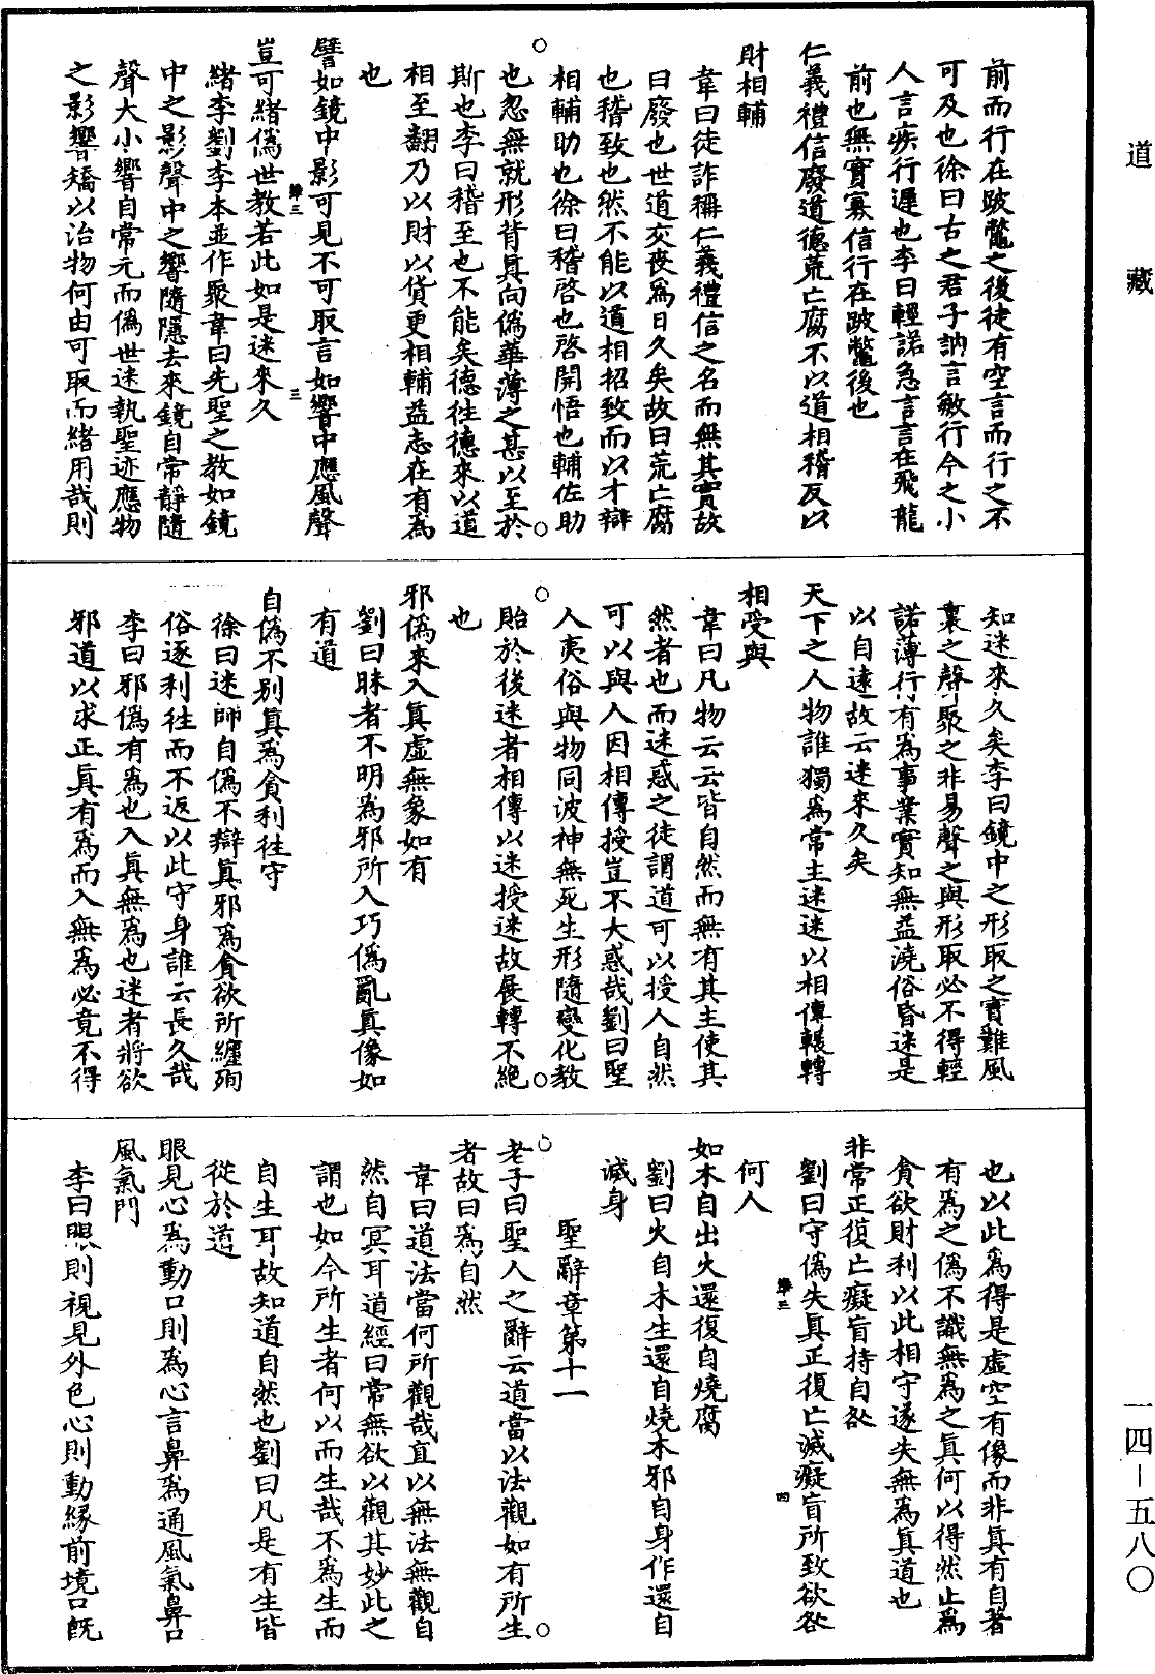 道藏
前而行在跛鼈之後徒有空言而行之不
可及也徐曰古之君子訥言敏行今之小
人言疾行遲也李曰輕諾急言言在飛龍
前也無實寡信行在跛鼈後也
仁義禮信廢道德荒亡腐不以道相稽反以
財相輔
韋曰徒詐稱仁義禮信之名而無其實故
曰廢也世道交喪爲日久矣故曰荒亡腐
也稽致也然不能以道相招致而以才辯
相輔助也徐曰稽啓也啓開悟也輔佐助
也忽無就形背眞向僞華薄之甚以至於
斯也李曰稽至也不能矣德徃德來以道
相至翻乃以財以貨更相輔益志在有爲
也
譬如鏡中影可見不可取言如響中應風聲
豈可緒僞世教若此如是迷來久
緒李劉李本並作聚韋曰先聖之教如鏡
中之影聲中之響隨隱去來鏡自常靜隨
聲大小響自常元而僞世迷執聖迹應物
之影響矯以治物何由可取而緒用哉則
知迷來久矣李曰鏡中之形取之實難風
裏之聲聚之非易聲之與形取必不得輕
諾薄行有爲事業實知無益澆俗昏迷是
以自遠故云迷來久矣
天下之人物誰獨爲常主迷迷以相傳輾轉
相受與
韋曰凡物云云皆自然而無有其主使其
然者也而迷惑之徒謂道可以授人自然
可以與人因相傳授豈不大惑哉劉曰聖
人夷俗與物同波神無死生形隨變化教
貽於後迷者相傳以迷授迷故展轉不絕
也
邪僞來入眞虛無象如有
劉曰昧者不明爲邪所入巧僞亂眞像如
有道
自僞不別眞爲貪利徃守
徐曰迷師自僞不辯眞邪爲貪欲所纏殉
俗逐利徃而不返以此守身誰云長久哉
李曰邪僞有爲也入眞無爲也迷者將欲
邪道以求正眞有爲而入無爲必竟不得
也以此爲得是虛空有像而非眞有自著
有爲之僞不識無爲之眞何以得然止爲
貪欲財利以此相守遂失無爲眞道也
非常正復亡癡盲持自咎
劉曰守僞失眞正復亡滅癡盲所致欲咎
何人
如木自出火還復自燒腐
劉曰火自木生還自燒木邪自身作還自
滅身
聖辭章第十一
老子曰聖人之辭云道當以法觀如有所生
者故曰爲自然
韋曰道法當何所觀哉直以無法無觀自
然自冥耳道經曰常無欲以觀其妙此之
謂也如今所生者何以而生哉不爲生而
自生耳故知道自然也劉曰凡是有生皆
從於道
眼見心爲動口則爲心言鼻爲通風氣鼻口
風氣門
李曰眼則視見外色心則動緣前境口旣
一四－五八〇